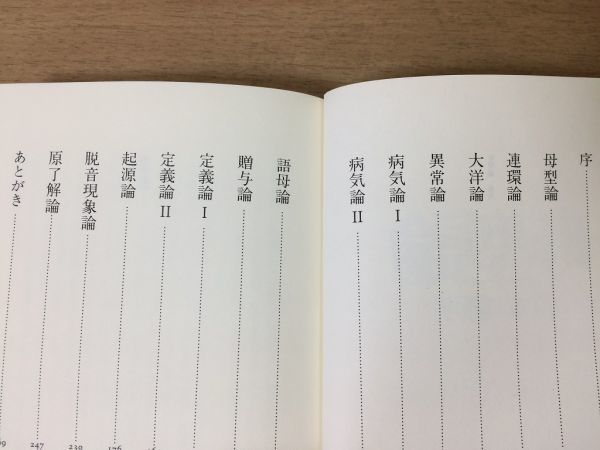 序
母型論
連環論
大洋論
異常論
病気論 I
病気論 II
語母論
贈与論
定義論 I
定義論 II
起源論
脱音現象論 239
原了解論 247
あとがき